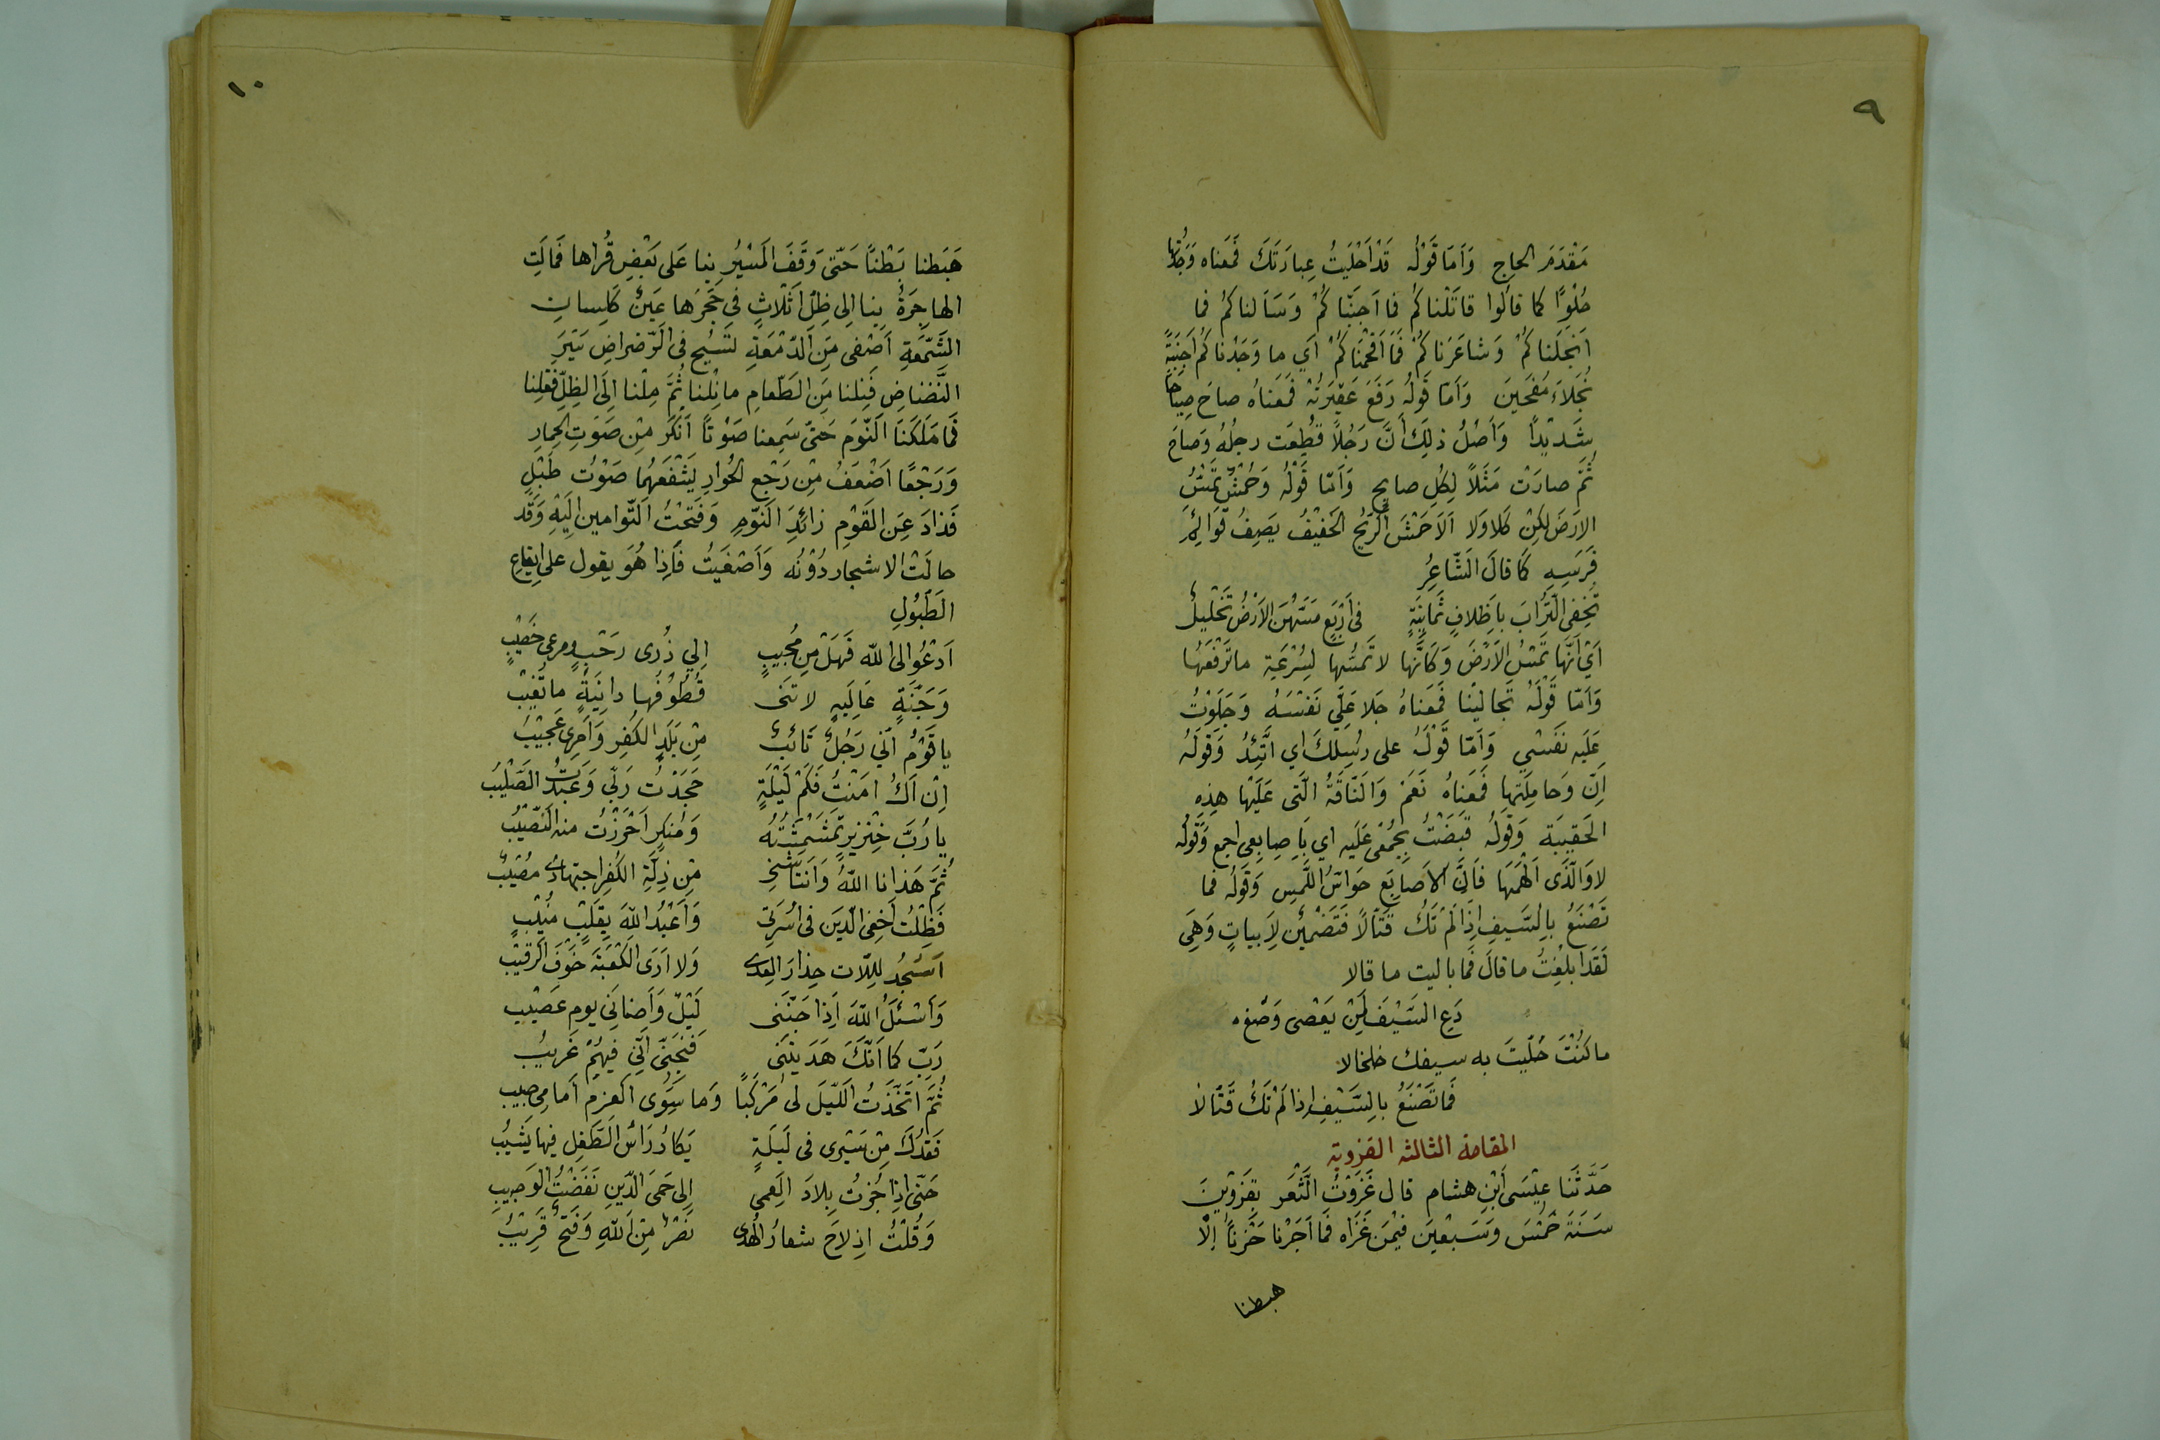 ٩
مَقْدَمَ الحاج وَاَمَا قَوْلُه قَدْ اَحْلَيتُ عِبارَتَكَ فَمَعناه وَجَدْتُها
حُلْوًا كما قالُوا قاتَلْناكُم فما اَجبَنّاكُمْ وَسَاَلناكُم فما
اَبْخَلْناكُمْ وَشاعَرْناكُمْ فَمَا اَفْحَمْناكُمْ اَي ما وَجَدْناكُم اَجبِنَةً
بُخَلاءَ مُفحَمينَ وَاَمّا قَولُهُ رَفَعَ عَقيرَتَهُ فَمَعناهُ صاحَ صِياحًا
شَديْدًا وَاَصْلُ ذلِكَ اَنَّ رَجُلاً قُطِعَت رجلُهُ وَصاحَ
ثُمّ صارَتْ مَثَلاً لِكُلِ صايحٍ وَاَمّا قَوْلُه وَحُمْشٍ تَمَسُّ
الارَضَ لكِنْ كَلا وَلا اَلاَحْمَشُ الخَفيْفُ يَصِفُ قَوائِمَ
فَرَسِهِ كَمَا قالَ الشّاعِرُ
تُخفِى التُّرابَ باَظِلافٍ ثَمانِيَةٍ فى اَرْبَعٍ مَسَّهُنَ الاَرْضُ تَحْليلُ
اَيْ اَنَّها تَمَسُّ الاَرْضَ وَكَاَنَّها لا تَمَسُّها لِسُرْعَةِ ما تَرْفَعُها
وَاَمّا قَوْلُهُ تَجالَيْنا فَمَعناهُ جَلا عَلَيَّ نَفسَهُ وَجَلَوْتُ
عَلَيهِ نَفَسْي وَاَمّا قَوْلُهُ على رِسْلِكَ اي اتَّئِدْ وَقَولُهُ
اِنّ وَحامِلَتَها فَمَعناهُ نَعَمْ وَالنّاقَةُ الَّتى عَلَيْها هذِهِ
الحَقيبَة وَقَولُهُ قبَضْتُ بِجُمْعى عَلَيه اي باَصابِعى اجمع وَقَولُه
لا وَالَّذى اَلْهَمَها فَاِنَّ الاَصابِعَ حَواسُّ اللَّمسِ وَقَولُه فما
تَصْنَعُ بالسَّيفِ اِذا لَمْ تَكُ قَتّالاً فَتَضْمين لِاَبياتٍ وَهِيَ
لَقَدْ اُبلِغْتُ ما قالَ فَما باليت ما قالا
دَعِ السَّيْفَ لِمَنْ يَعْصى وَصُغه
ما كُنْتَ حُلّيتَ به سيفك خلخالا
فَما تَصْنَعُ بالسَّيْفِ اِذا لَمْ تَكُ قَتّالاً
المقامة الثالثه القزوية
حَدَّثَنا عيْسَى اَبْنِ هشام قال غَزَوْتُ الثَّغرَ بِقَزْوينَ
سَنَةَ خَمْسَ وَسَبعينَ فيْمَن غَزاه فَما اَجَزْنا حَزْنًا اِلّا
هبطنا
١٠
هَبَطنا بَطْنًا حَتّى وَقَفَ المَسيْرُ بِنا عَلى بَعْضِ قُراها فَمالَتِ
الهاجِرَةُ بِنا الى ظِلِّ اَثْلاثٍ في حَجَرِها عَينٌ كَلِسانِ
الشَّمَعةِ اَصْفى مِنَ الدَّمْعَةِ تَسيْح فى الرَّضْراضِ سَيْرَ
النَّضْناضِ فَنِلنا مِنَ الطَّعامِ ما نِلْنا ثُمَّ مِلْنا اِلَى الظِلِّ فَقِلنا
فَما مَلَكَنا النَّوَم حَتّى سَمِعنا صَوْتًا اَنْكَرَ مِنْ صَوْتِ الحِمارِ
وَرَجْعًا اَضْعَفُ مِنْ رَجْعِ الحُوارِ يَشْفَعَهُما صَوْتُ طَبْلٍ
فَذادَ عَنِ القَوْمِ زائِدَ النَّوْمِ وَفَتَحْتُ التَّوامين اِلَيْهِ وَقَد
حالَتْ الاشجار دُوْنُه وَاَصْغَيتُ فَاِذا هُوَ يقول على اِيقاعِ
الطَبُولِ
اَدْعُوا الى اللّه فَهَلْ مِن مُجيبٍ اِلي ذُرى رَحْبٍ ومرعى خَصْيبٍ
وَجَنَّةٍ عَالِيَةٍ لا تنى قُطُوْفُها دانِيَةٌ ما تُغيْب
يا قَوْمُ اَنّي رَجُلٌ تَائبٌ مِن بَلَدِ الكُفرِ وَاَمرى عَجيْبُ
اِنْ اَكُ امَنْتُ فَكَمْ لَيْلَةٍ جَحَدْتُ رَبّي وَعَبَدْتُ الصَّليْبُ
يا رُبَّ خِنْزيرٍ تَمَشَّمشتُه وَمُنكَرٍ اَحْرَزْتُ منه النَصيْبُ
ثُمَّ هَدانا اللّهُ وَانتاشَنى مِن ذِلّةِ الكُفرِ اجتهادٌ مُصْيبٌ
فَظِلْتُ اَخفِى الدّيَن فى اُسْرَتى وَاَعْبُدُ اللّهَ بِقَلبٍ مُنيْبٍ
اَسْجُد لِلّلات حِذارَ العِدى وَلا اَرَى الكَعْبَةَ خَوْفَ الرَقيْب
وَاَسْئَلُ اللّهَ اِذا جَنّنَى لَيْلٌ وَاَضنانى يوم عَصْيبِ
رَبّ كما اَنّكَ هَدَيتَنى فَنَجِنّى اِنّى فيهُمْ غَريبُ
ثُمَّ اتَخَذتُ اللّيَلَ لى مَرْكَبًا وَما سَوُى العَزمِ اَمامى جبيب
فَقَدْكَ مِنْ سَيْرى فى لَيلَةٍ يَكادُ رَاْسُ الطَفلِ فيها يَشيْبُ
حَتّى اِذا جُزتُ بِلادَ العَمى اِلى حَمَى الدّينِ نَفَضْتُ الوَجيبِ
وَقُلْتُ اذ لاحَ شعارُ الهُدى نَصْرٌ مِنَ اللّهِ وَفَتْحٌ قَريْبُ